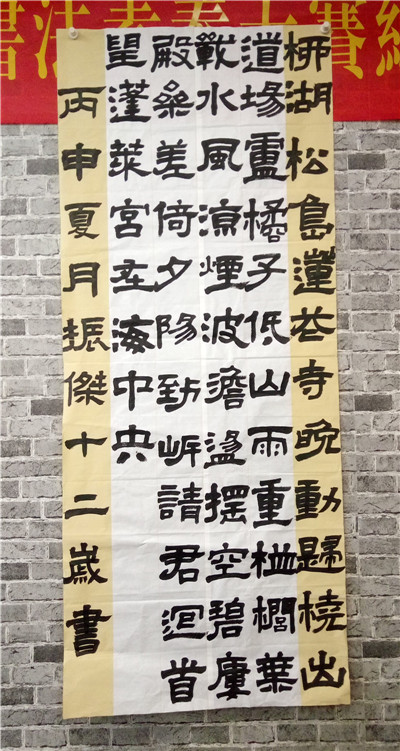 書法 大賽
桺湖松島蓮花寺晚動歸橈出
道場盧橘子低山雨重栟櫚葉
戰水風涼煙波澹盪摇空碧廔
殿桑差倚夕陽到岍請君迴首
望蓬萊宮在海中央
丙申夏月振傑十二歲書